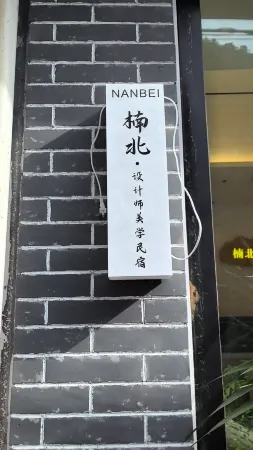 NANBEI
楠北·设计师美学民宿
楠北